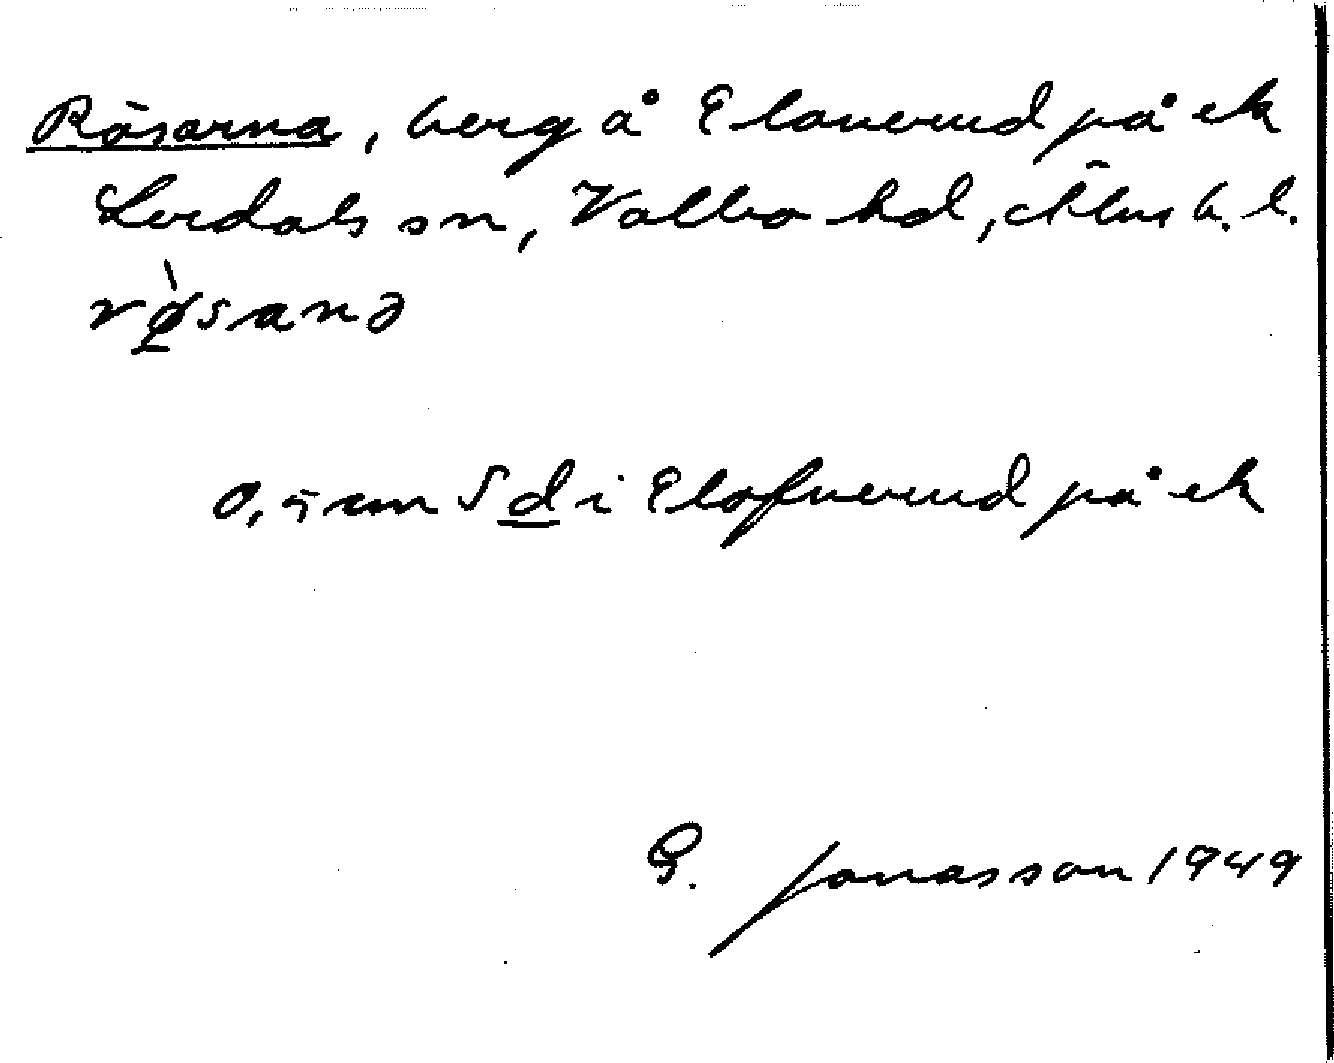 Rösarna, berg å Elaverud på ek
Lerdals sn, Valbo hd, Älvsb. l.
rø̀sanə
0,5 mm S d i Elofverud på ek
G. Jonasson 1949